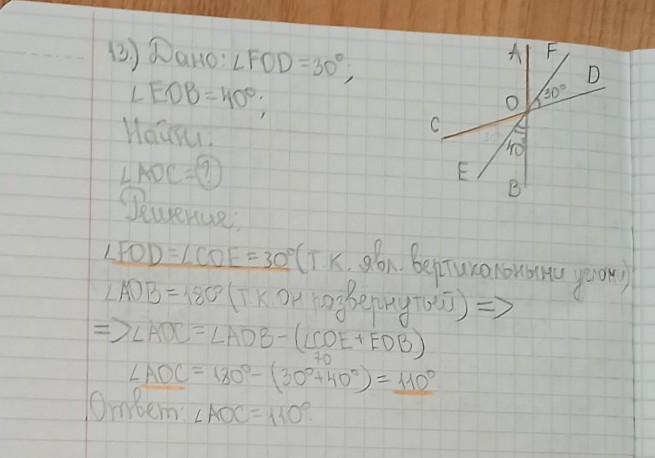 13.) Дано: ∠FOD = 30°;
∠EOB = 40°;
Найти:
∠AOC = ?
Решение:
∠FOD = ∠COE = 30° (т.к. явл. вертикальными углами)
∠AOB = 180° (т.к. он развернутый) =>
=> ∠AOC = ∠AOB - (∠COE + EOB)
70
∠AOC = 180° - (30° + 40°) = 110°
Ответ: ∠AOC = 110°.
A F
D
O 30°
C
40
E
B